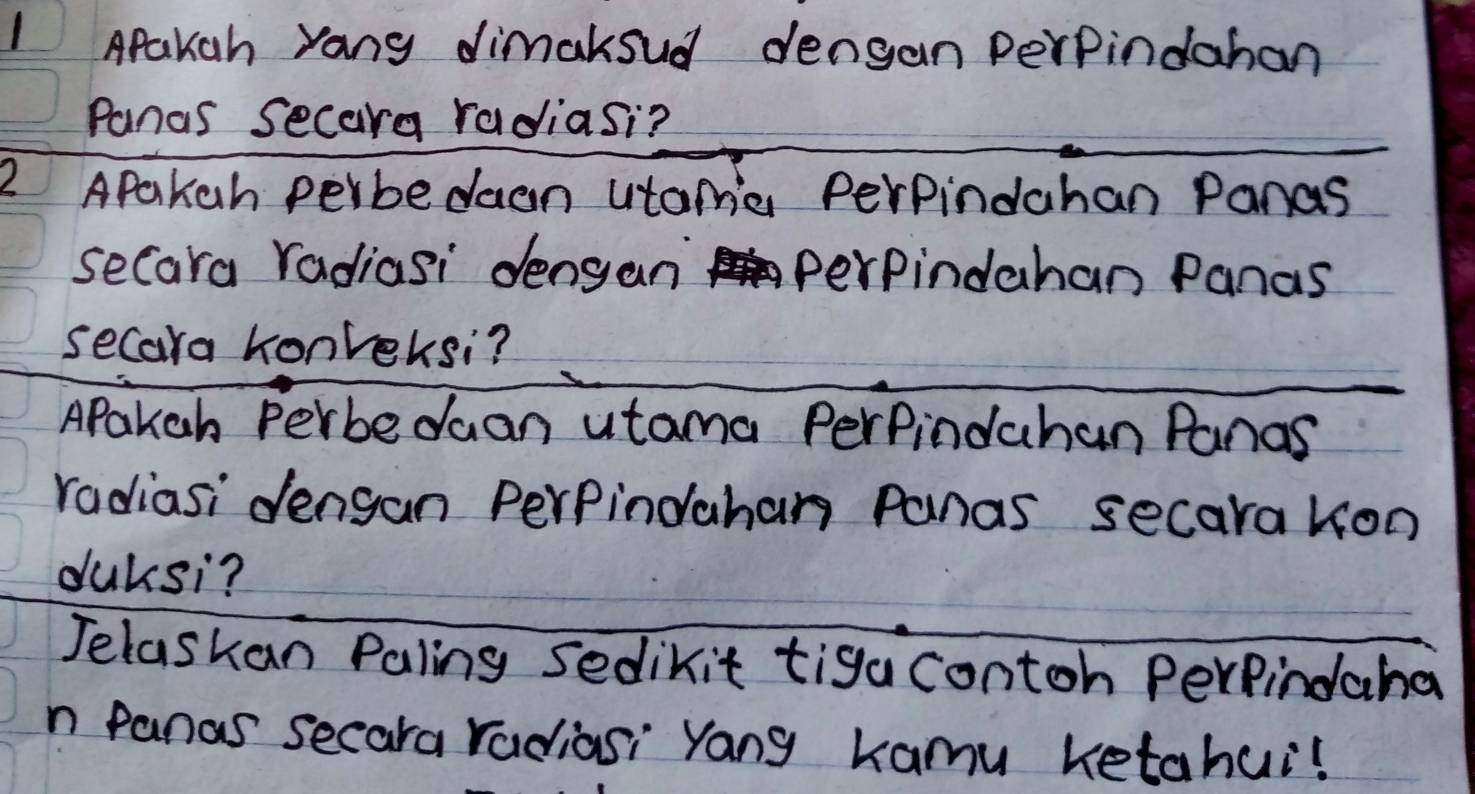 1 Apakah yang dimaksud dengan perpindahan
panas secara radiasi?
2 Apakah perbedaan utama perpindahan panas
secara radiasi dengan perpindahan panas
secara konveksi?
Apakah perbedaan utama perpindahan panas
radiasi dengan perpindahan panas secara kon
duksi?
Jelaskan paling sedikit tiga contoh perpindaha
n panas secara radiasi yang kamu ketahui!